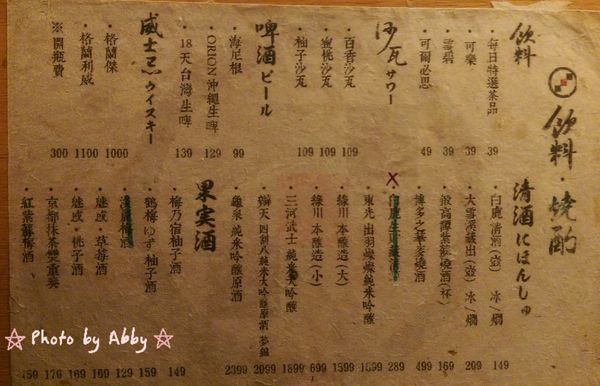 飲料・焼酌
飲料
・每日特選茶品 39
・可樂 39
・雪碧 39
・可爾必思 49
沙瓦サワー
・百香沙瓦 109
・蜜桃沙瓦 109
・柚子沙瓦 109
啤酒ビール
・海尼根 99
・ORION沖繩生啤 129
・18天台灣生啤 139
威士忌ウイスキー
・格蘭傑 1000
・格蘭利威 1100
※開瓶費 300
清酒にほんしゅ
・白鹿清酒(壺) 冰/燗 149
・大雪溪藏出(壺) 冰/燗 209
169
・博多之華麥燒酒 499
289
・東光 出羽燦燦純米吟釀 1099
・綠川 本釀造(大) 1599
・綠川 本釀造(小) 699
・三河武士 純米大吟釀 1899
2099
・龜泉 純米吟釀原酒 2399
果実酒
・梅乃宿柚子酒 149
・鶴梅ゆず柚子酒 159
129
・魅惑・草莓酒 169
・魅惑・桃子酒 169
・京都抹茶雙重奏 179
・紅紫蘇梅酒 159
☆ Photo by Abby ☆